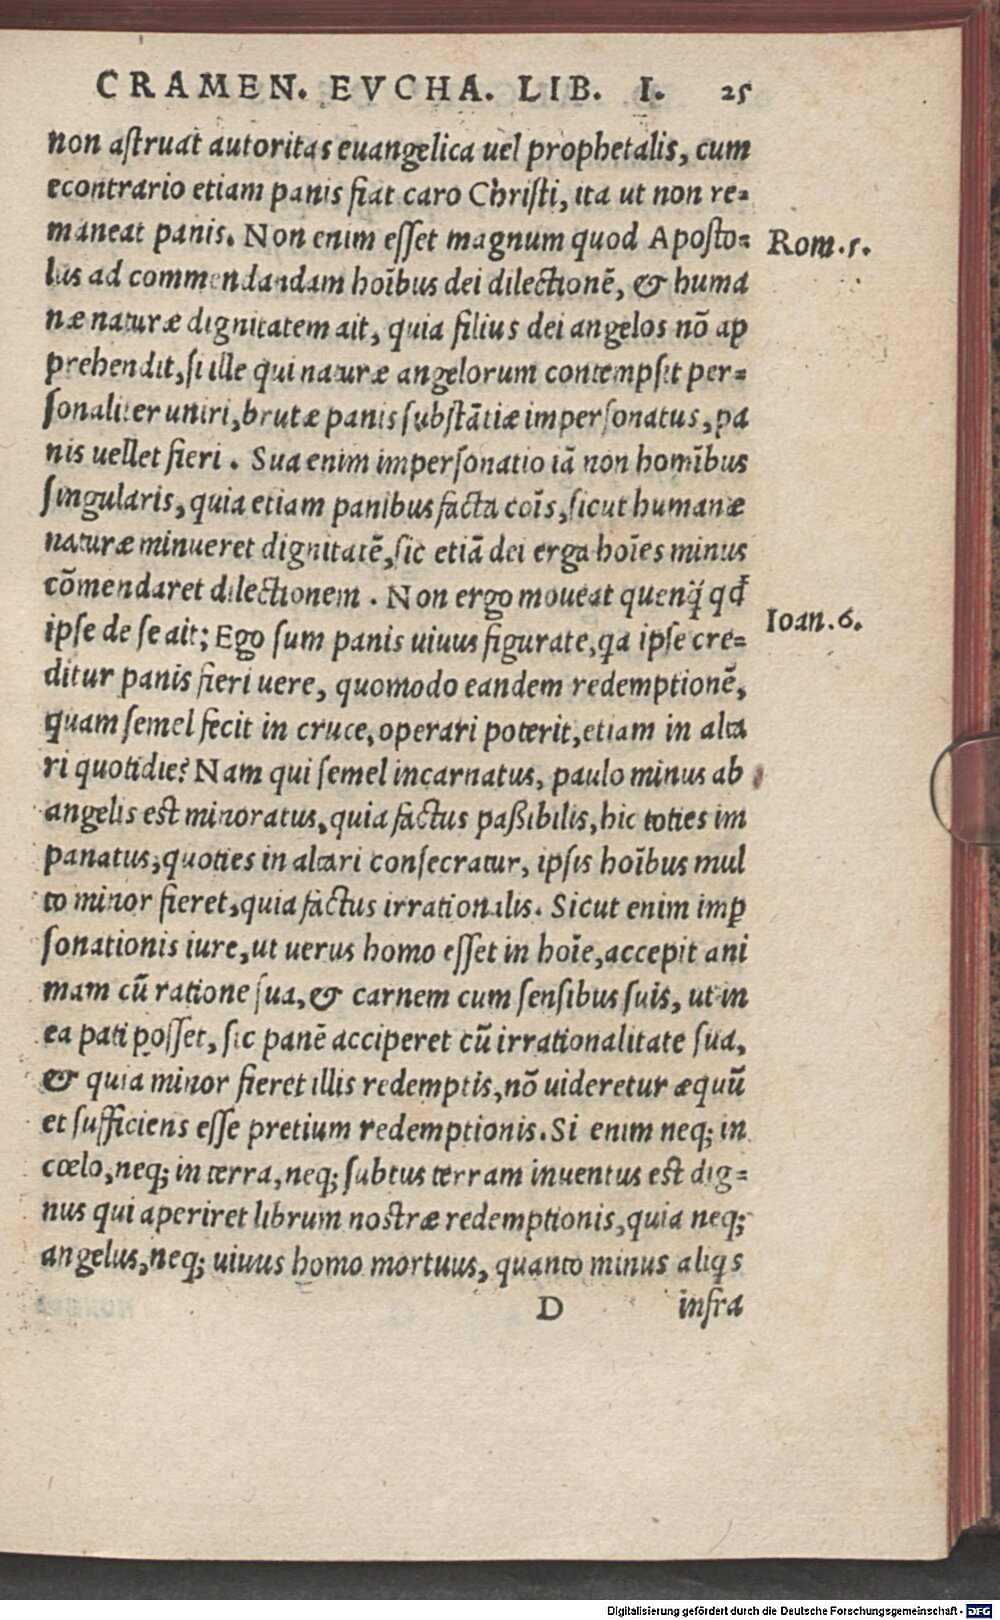 CRAMEN. EVCHA. LIB. I. 25
non aſtruat autoritas euangelica uel prophetalis, cum
econtrario etiam panis fiat caro Chriſti, ita ut non re-
maneat panis. Non enim eſſet magnum quod Apoſto- Rom.5.
lus ad commendandam hoībus dei dilectionē, & huma
næ naturæ dignitatem ait, quia filius dei angelos nō ap
prehendit, ſi ille qui naturæ angelorum contempſit per-
ſonaliter uniri, brutæ panis ſubſtātiæ imperſonatus, pa
nis uellet fieri. Sua enim imperſonatio iā non homībus
ſingularis, quia etiam panibus facta coīs, ſicut humanæ
naturæ minueret dignitatē, ſic etiā dei erga hoīes minus
cōmendaret dilectionem. Non ergo moueat quenq̃ qđ
ipſe de ſe ait; Ego ſum panis uiuus figurate, qa ipſe cre- Ioan.6.
ditur panis fieri uere, quomodo eandem redemptionē,
quam ſemel fecit in cruce, operari poterit, etiam in alta
ri quotidie? Nam qui ſemel incarnatus, paulo minus ab
angelis eſt minoratus, quia factus paßibilis, hic toties im
panatus, quoties in altari conſecratur, ipſis hoībus mul
to minor fieret, quia factus irrationalis. Sicut enim imꝑ
ſonationis iure, ut uerus homo eſſet in hoīe, accepit ani
mam cū ratione ſua, & carnem cum ſenſibus ſuis, ut in
ea pati poſſet, ſic panē acciperet cū irrationalitate ſua,
& quia minor fieret illis redemptis, nō uideretur æquū
et ſufficiens eſſe pretium redemptionis. Si enim neq; in
cœlo, neq; in terra, neq; ſubtus terram inuentus eſt dig-
nus qui aperiret librum noſtræ redemptionis, quia neq;
angelus, neq; uiuus homo mortuus, quanto minus aliqs
D infra
Digitalisierung gefördert durch die Deutsche Forschungsgemeinschaft - DFG